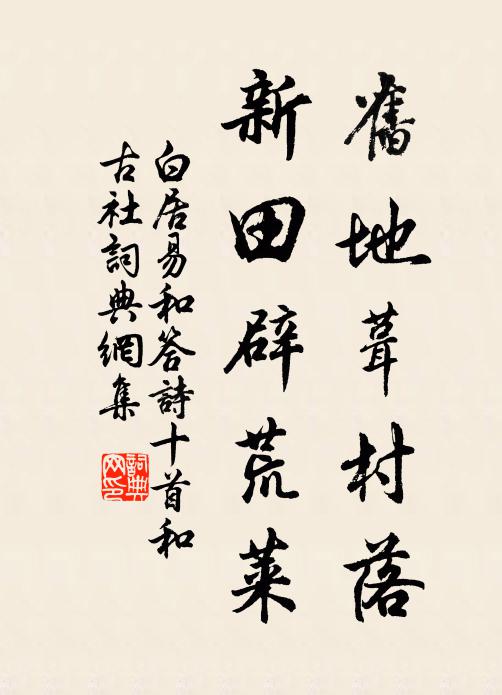 舊地葺村落
新田辟荒萊
白居易和答詩十首和
古社詞典網集
詞典網印